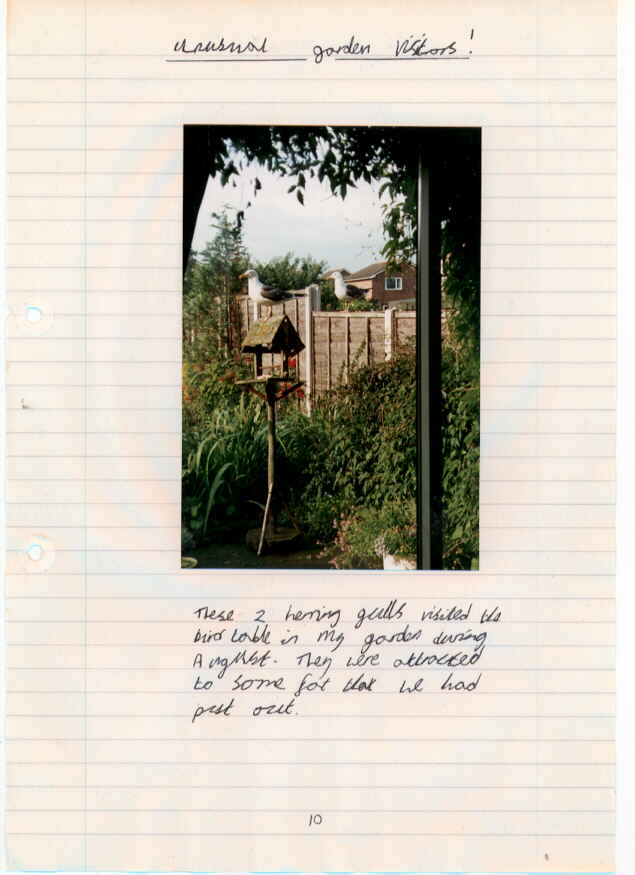 unusual garden visitors!
These 2 herring gulls visited the
bird table in my garden during
August. They were attracted
to some fat that we had
put out.
10